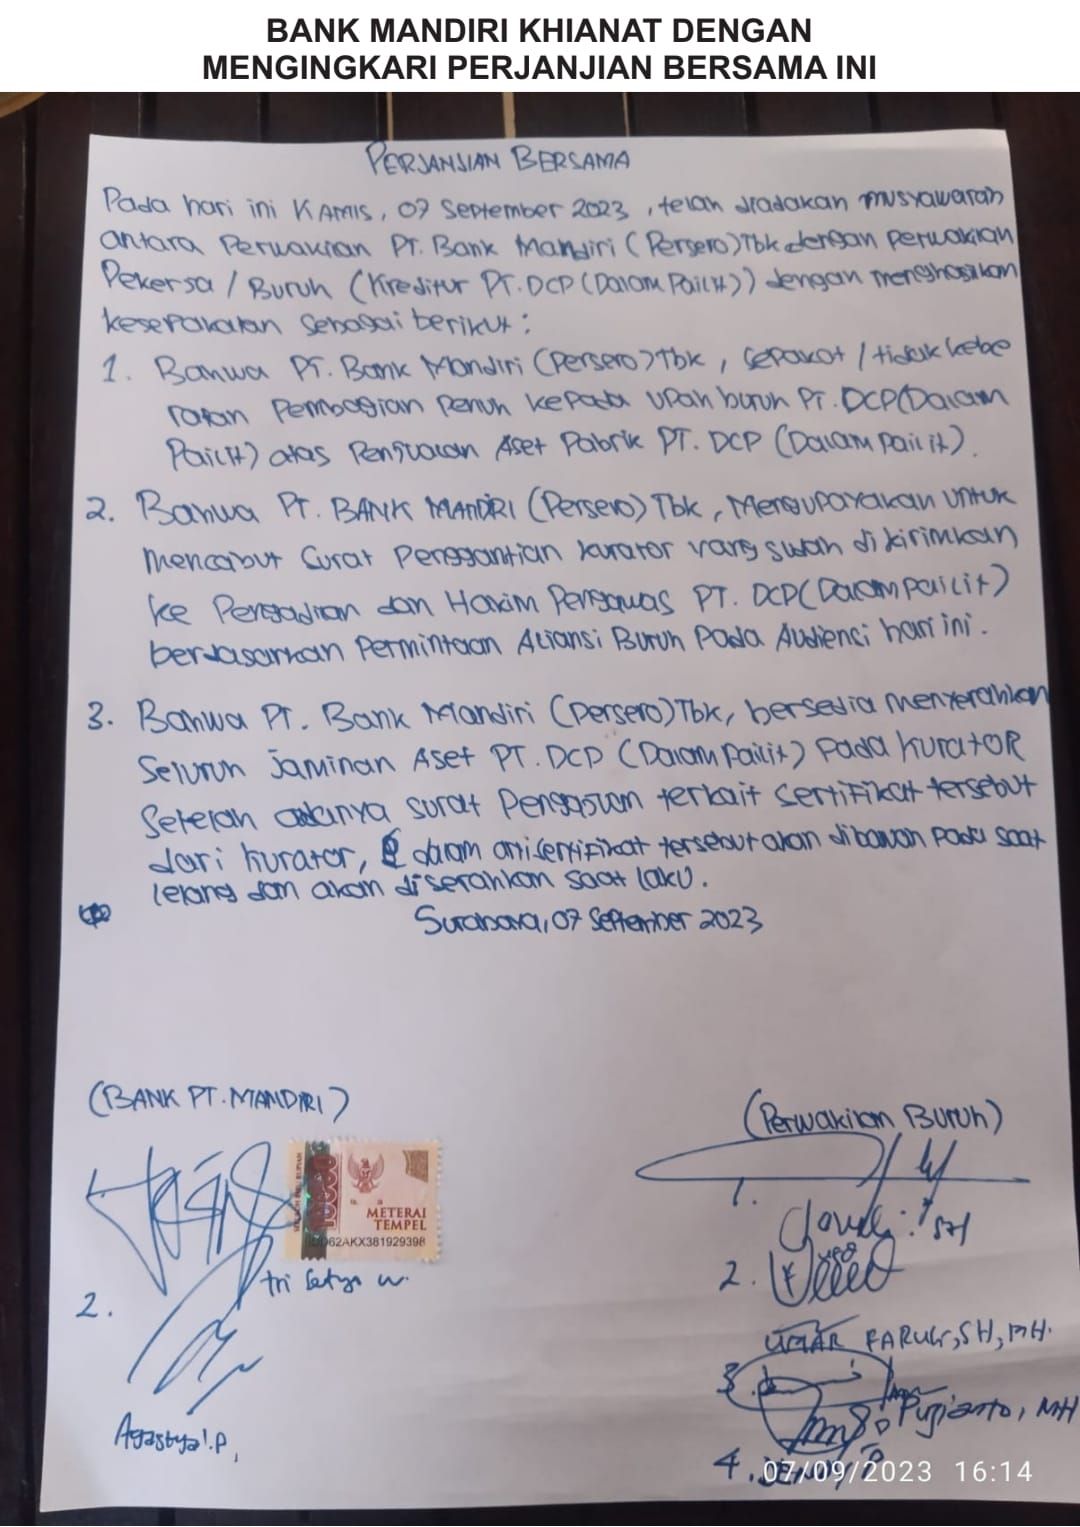 BANK MANDIRI KHIANAT DENGAN
MENGINGKARI PERJANJIAN BERSAMA INI
PERJANJIAN BERSAMA
Pada hari ini KAMIS, 07 September 2023, telah diadakan musyawarah
antara Perwakilan PT. Bank Mandiri (Persero) Tbk dengan perwakilan
Pekerja / Buruh (Kreditur PT. DCP (Dalam Pailit)) dengan menghasilkan
kesepakatan sebagai berikut :
1. Bahwa PT. Bank Mandiri (Persero) Tbk, sepakat / tidak kebe
ratan Pembagian penuh kepada upah buruh PT. DCP (Dalam
Pailit) atas Penjualan Aset Pabrik PT. DCP (Dalam pailit).
2. Bahwa PT. BANK MANDIRI (Persero) Tbk, Mengupayakan untuk
mencabut surat Penggantian kurator yang sudah dikirimkan
ke Pengadilan dan Hakim Pengawas PT. DCP (Dalam pailit)
berdasarkan Permintaan Aliansi Buruh Pada Audiensi hari ini.
3. Bahwa PT. Bank Mandiri (Persero) Tbk, bersedia menyerahkan
Seluruh jaminan Aset PT. DCP (Dalam Pailit) Pada KURATOR
Setelah adanya surat Pengajuan terkait sertifikat tersebut
dari kurator, dalam arti sertifikat tersebut akan dibawah pada saat
lelang dan akan diserahkan saat laku.
Surabaya, 07 September 2023
(BANK PT. MANDIRI)
(Perwakilan Buruh)
10000
METERAI
TEMPEL
62AKX381929398
tri Setyo W.
1.
SH
2.
2.
UMAR FARUQ, SH, MH.
3.
Pujianto, MH
Agastya I.P,
4.
07/09/2023 16:14